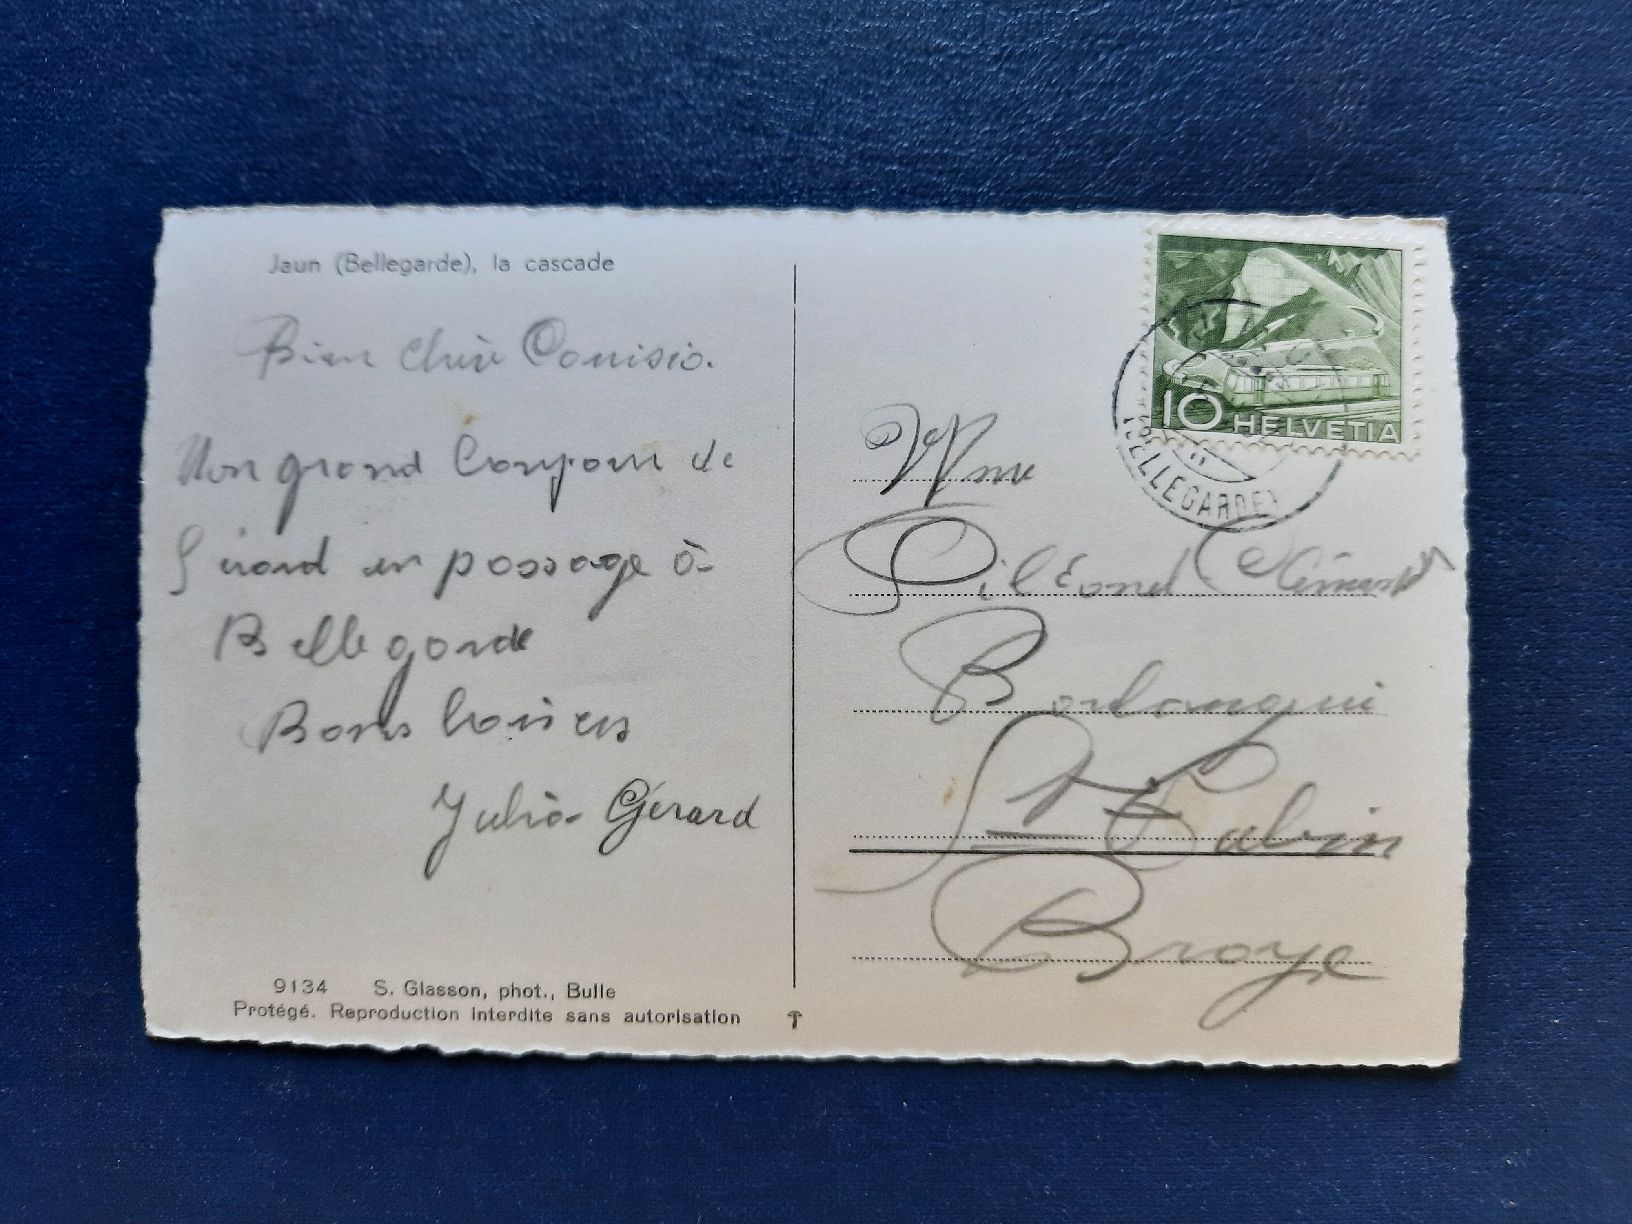 Jaun (Bellegarde), la cascade
Bien chère
Mon grand bonjour de
Gérard en passage à
Bellegarde
Bons baisers
Julia Gérard
9134 S. Glasson, phot., Bulle
Protégé. Reproduction interdite sans autorisation
10 HELVETIA
(BELLEGARDE)
Mme
Pilléonel
Boulangerie
St Aubin
Broye